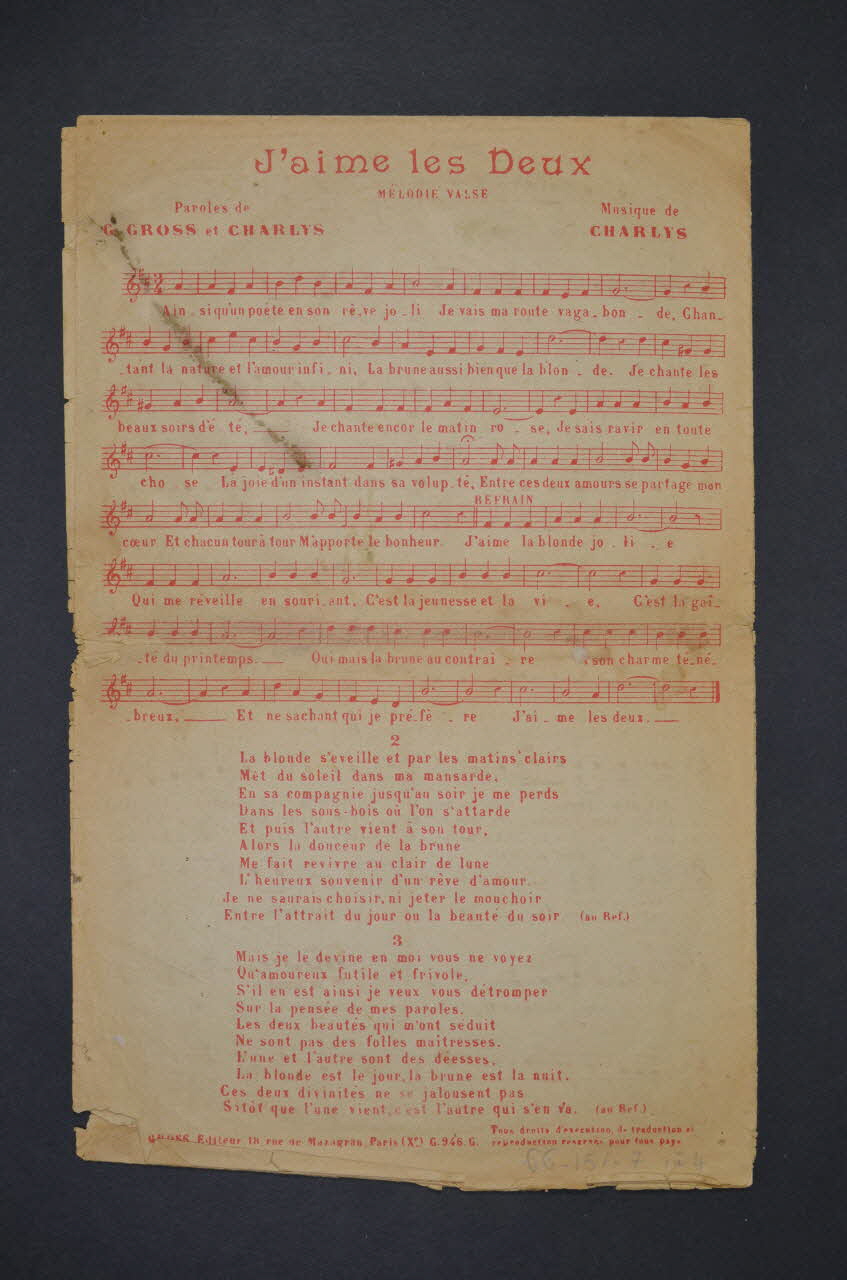 J'aime les Deux
MÉLODIE VALSE
Paroles de
G. GROSS et CHARLYS
Musique de
CHARLYS
Ain_si qu'un poéte en son rê_ve jo_li Je vais ma route vaga_bon_de, Chan_
_tant la nature et l'amour infi_ni, La brune aussi bien que la blon_de. Je chante les
beaux soirs d'é_té, Je chante encor le matin ro_se, Je sais ravir en toute
cho_se La joie d'un instant dans sa volup_té, Entre ces deux amours se partage mon
REFRAIN
cœur Et chacun tour à tour M'apporte le bonheur. J'aime la blonde jo_li_e
Qui me réveille en souri_ant, C'est la jeunesse et la vi_e, C'est la gai_
_té du printemps. Oui mais la brune au contrai_re son charme te_né_
_breux, Et ne sachant qui je pré_fè_re J'ai_me les deux.
2
La blonde s'eveille et par les matins clairs
Mèt du soleil dans ma mansarde,
En sa compagnie jusqu'au soir je me perds
Dans les sous-bois où l'on s'attarde
Et puis l'autre vient à son tour,
Alors la douceur de la brune
Me fait revivre au clair de lune
L'heureux souvenir d'un rêve d'amour.
Je ne saurais choisir, ni jeter le mouchoir
Entre l'attrait du jour ou la beauté du soir (au Ref.)
3
Mais je le devine en moi vous ne voyez
Qu'amoureux futile et frivole,
S'il en est ainsi je veux vous détromper
Sur la pensée de mes paroles.
Les deux beautés qui m'ont séduit
Ne sont pas des folles maîtresses.
L'une et l'autre sont des déesses,
La blonde est le jour, la brune est la nuit.
Ces deux divinités ne se jalousent pas
Sitôt que l'une vient, c'est l'autre qui s'en va. (au Ref.)
GROSS Editeur 18, rue de Mazagran Paris (Xe) G. 946. G.
Tous droits d'execution, de traduction et
reproduction reservés pour tous pays